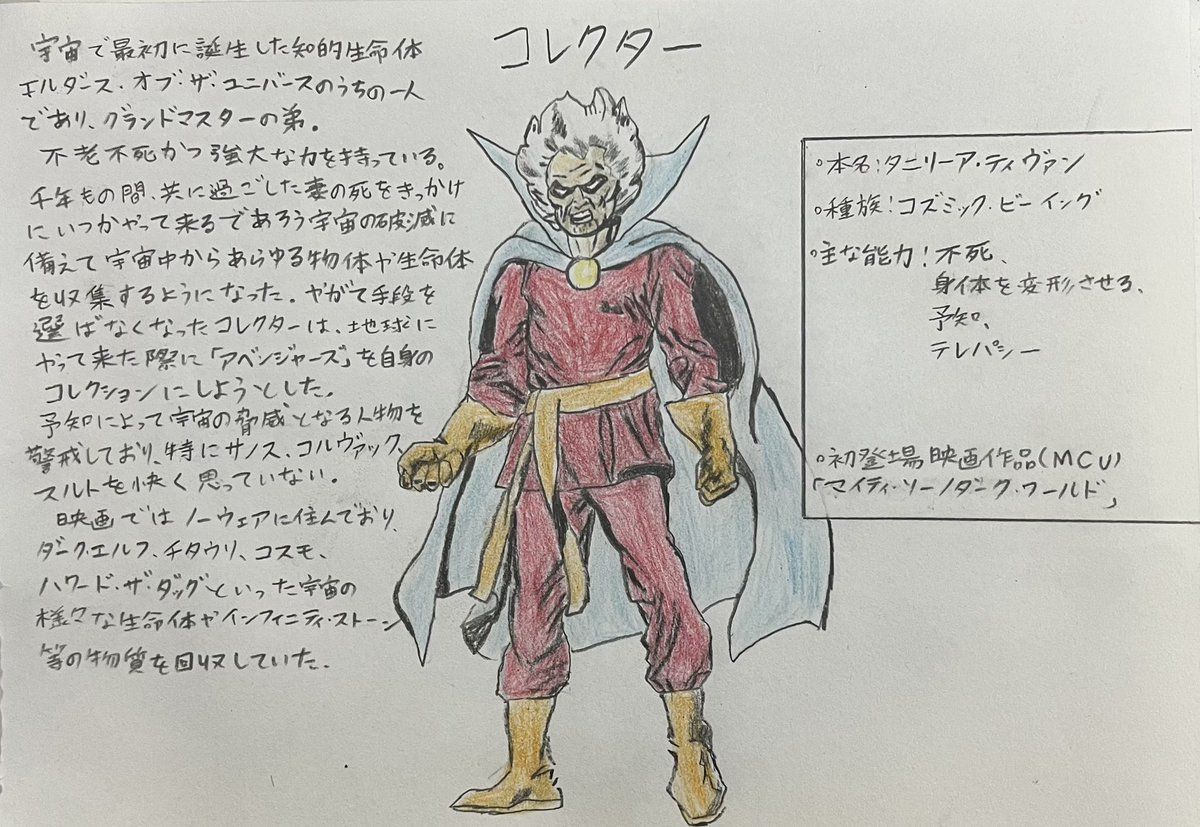 コレクター
宇宙で最初に誕生した知的生命体
エルダース・オブ・ザ・ユニバースのうちの一人
であり、グランドマスターの弟。
不老不死かつ強大な力を持っている。
千年もの間、共に過ごした妻の死をきっかけ
にいつかやって来るであろう宇宙の破滅に
備えて宇宙中からあらゆる物体や生命体
を収集するようになった。やがて手段を
選ばなくなったコレクターは、地球に
やって来た際に「アベンジャーズ」を自身の
コレクションにしようとした。
予知によって宇宙の脅威となる人物を
警戒しており、特にサノス、コルヴァック、
スルトを快く思っていない。
映画ではノーウェアに住んでおり、
ダークエルフ、チタウリ、コスモ、
ハワード・ザ・ダッグといった宇宙の
様々な生命体やインフィニティ・ストーン
等の物質を回収していた。
○本名：タニリーア・ティヴァン
○種族：コズミック・ビーイング
○主な能力：不死、
身体を変形させる、
予知、
テレパシー
○初登場映画作品(MCU)
「マイティ・ソー/ダーク・ワールド」